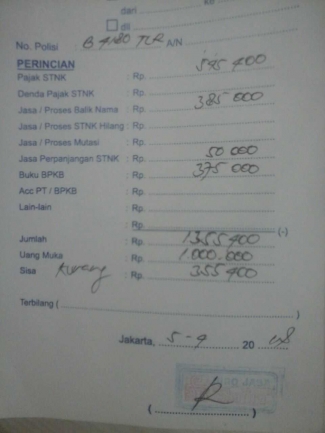 dari ke
dll
No. Polisi B 4180 TLR A/N
PERINCIAN
Pajak STNK : Rp. 545 400
Denda Pajak STNK : Rp. 385 000
Jasa / Proses Balik Nama : Rp.
Jasa / Proses STNK Hilang : Rp.
Jasa / Proses Mutasi : Rp.
Jasa Perpanjangan STNK : Rp. 50 000
Buku BPKB : Rp. 375 000
Acc PT / BPKB : Rp.
Lain-lain : Rp.
: Rp. (-)
Jumlah : Rp. 1355 400
Uang Muka : Rp. 1.000.000
Sisa kurang : Rp. 355 400
Terbilang ( )
Jakarta, 5-9 20 18
( )